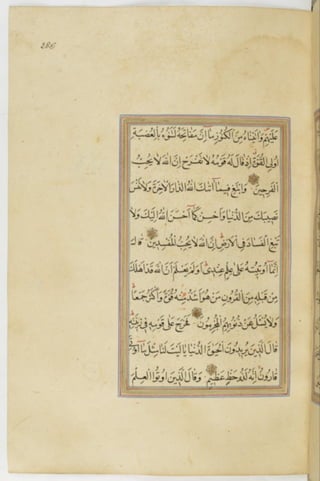 286
عَلَيْهِمْ وَآتَيْنَاهُ مِنَ الْكُنُوزِ مَا إِنَّ مَفَاتِحَهُ لَتَنُوءُ بِالْعُصْبَةِ
أُولِي الْقُوَّةِ إِذْ قَالَ لَهُ قَوْمُهُ لَا تَفْرَحْ إِنَّ اللَّهَ لَا يُحِبُّ
الْفَرِحِينَ وَابْتَغِ فِيمَا آتَاكَ اللَّهُ الدَّارَ الْآخِرَةَ وَلَا تَنْسَ
نَصِيبَكَ مِنَ الدُّنْيَا وَأَحْسِنْ كَمَا أَحْسَنَ اللَّهُ إِلَيْكَ وَلَا
تَبْغِ الْفَسَادَ فِي الْأَرْضِ إِنَّ اللَّهَ لَا يُحِبُّ الْمُفْسِدِينَ قَالَ
إِنَّمَا أُوتِيتُهُ عَلَى عِلْمٍ عِنْدِي أَوَلَمْ يَعْلَمْ أَنَّ اللَّهَ قَدْ أَهْلَكَ
مِنْ قَبْلِهِ مِنَ الْقُرُونِ مَنْ هُوَ أَشَدُّ مِنْهُ قُوَّةً وَأَكْثَرُ جَمْعًا
وَلَا يُسْئَلُ عَنْ ذُنُوبِهِمُ الْمُجْرِمُونَ فَخَرَجَ عَلَى قَوْمِهِ فِي زِينَتِهِ
قَالَ الَّذِينَ يُرِيدُونَ الْحَيٰوةَ الدُّنْيَا يَا لَيْتَ لَنَا مِثْلَ مَا أُوتِيَ
قَارُونُ إِنَّهُ لَذُو حَظٍّ عَظِيمٍ وَقَالَ الَّذِينَ أُوتُوا الْعِلْمَ